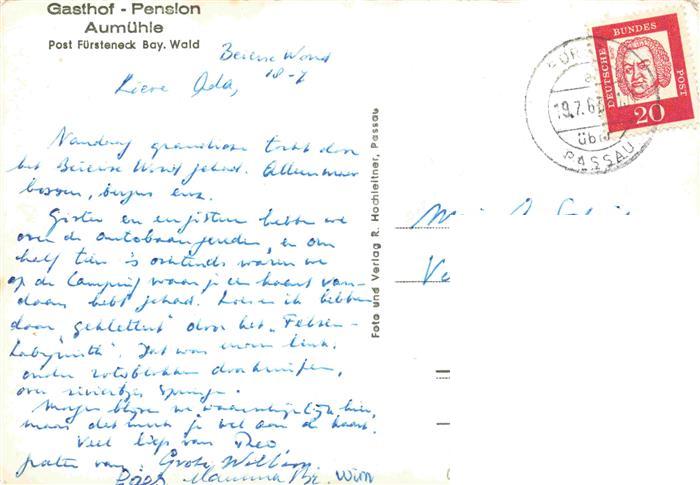 Gasthof - Pension
Aumühle
Post Fürsteneck Bay. Wald
Beierse Woud
18-7
Lieve Oda,
Vandaag grandiose tocht door
het Beierse Woud gehad. Allemaal
bossen, bergen enz.
Gisteren en eergisteren hebben we
over de autobaan gereden, en om
half tien 's ochtends waren we
op de Camping waar je een kaart van-
daan hebt gehad. Loes en ik hebben
daar "geklettert" door het "Felsen-
Labyrinth". Dat was enorm leuk,
onder rotsblokken doorkruipen,
over riviertjes springen.
Morgen blijven we waarschijnlijk hier,
maar dat merk je wel aan de kaart.
Veel liefs van Theo
groeten van
Loes Mamma Br. Wim
Foto und Verlag R. Hochleitner, Passau
DEUTSCHE BUNDES POST
20
19.7.6
über
PASSAU